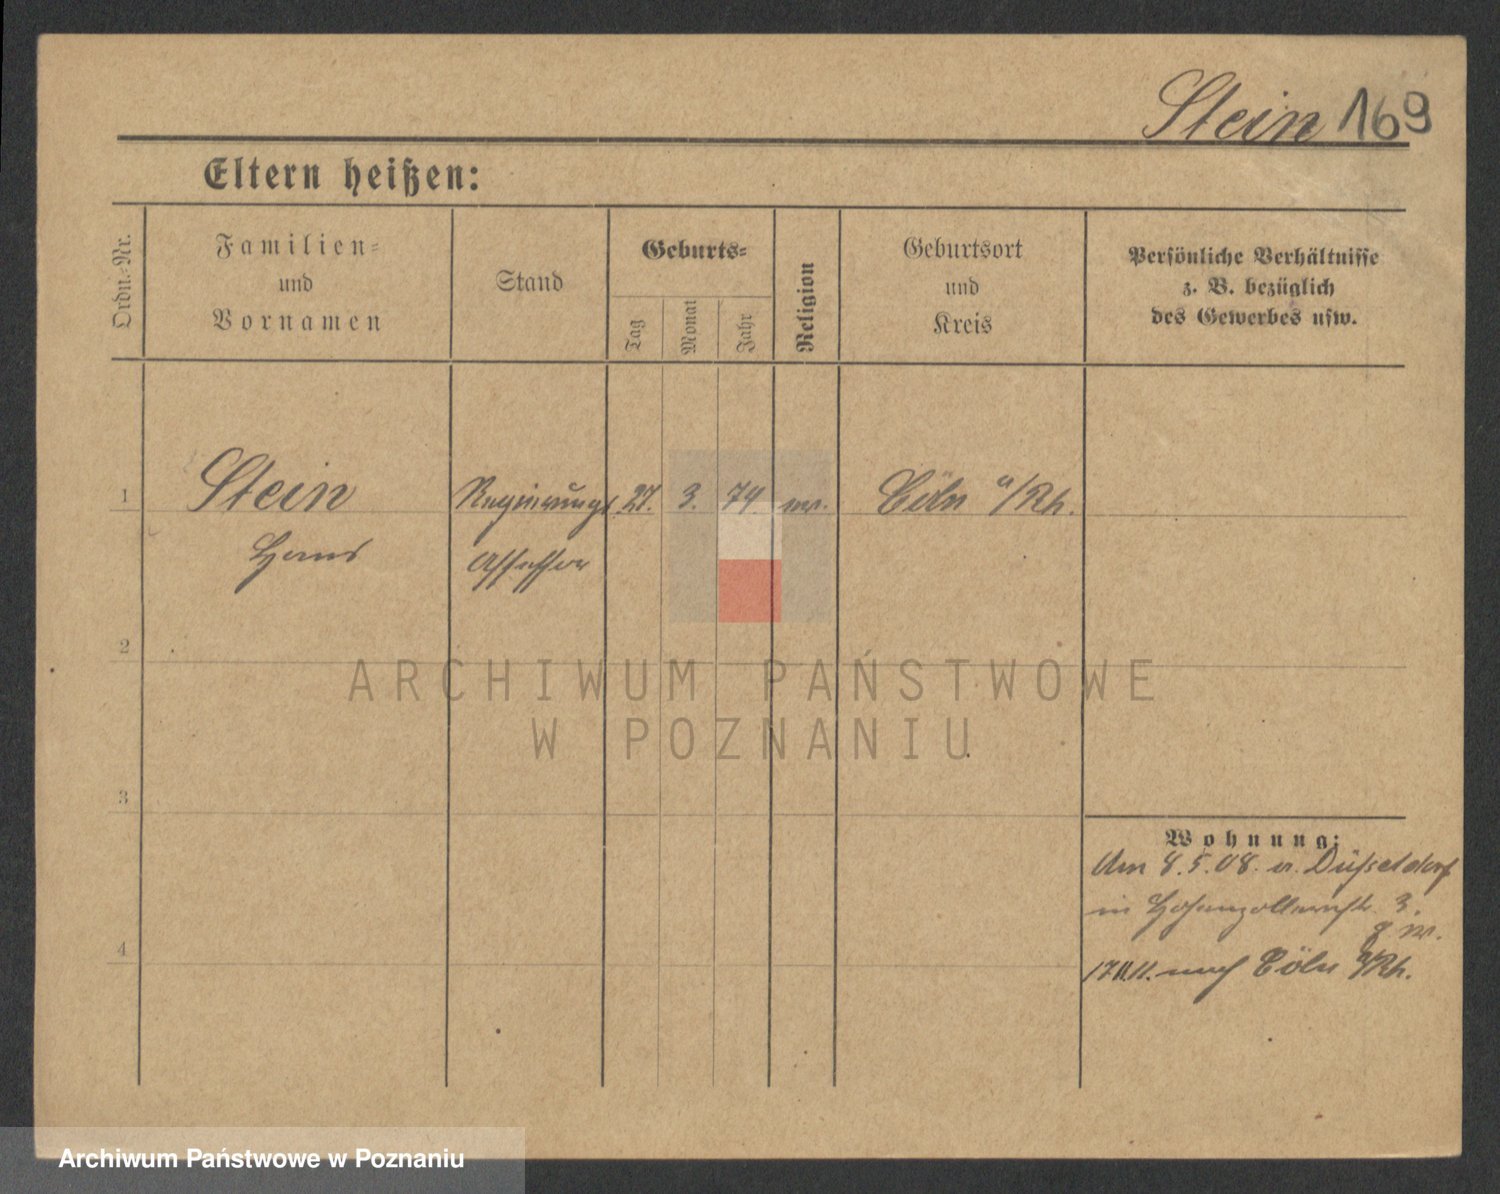 Stein 169
Eltern heißen:
Ordn.-Nr.
Familien-
und
Vornamen
Stand
Geburts-
Tag
Monat
Jahr
Religion
Geburtsort
und
Kreis
Persönliche Verhältnisse
z. B. bezüglich
des Gewerbes usw.
1 Stein Regierungs 27. 3. 74 Cöln a/Rh.
Hans Assessor
2
ARCHIWUM PAŃSTWOWE
W POZNANIU
3
Wohnung:
Am 8.5.08. v. Düsseldorf
in Hohenzollernstr. 3.
4
nach Cöln a/Rh.
Archiwum Państwowe w Poznaniu